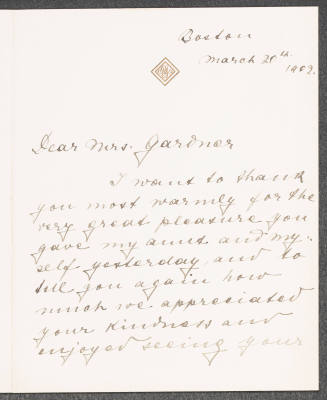 Boston
March 20th
1902.
Dear Mrs. Gardner
I want to thank
you most warmly for the
very great pleasure you
gave my aunt and my-
self yesterday, and to
tell you again how
much we appreciated
your kindness and
enjoyed seeing your